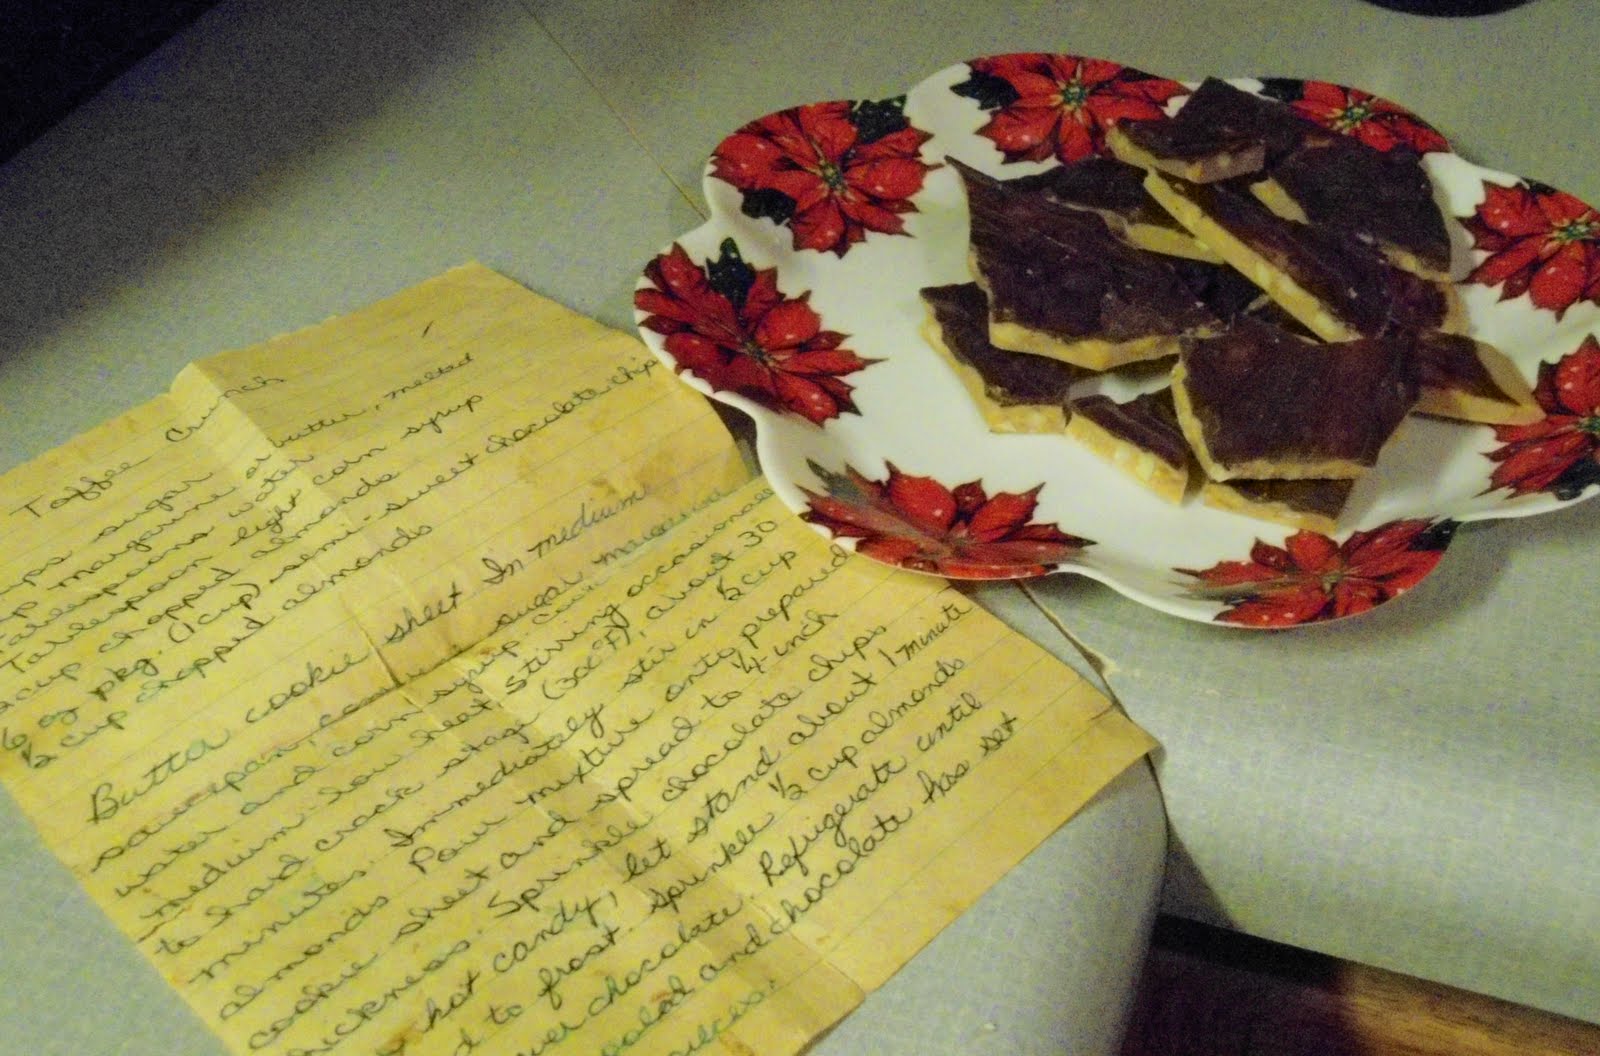 Toffee Crunch
sugar
margarine or butter, melted
Tablespoons water
Tablespoon light corn syrup
cup chopped almonds
6 oz pkg. (1 cup) semi-sweet chocolate chips
1/2 cup chopped almonds
Butter cookie sheet In medium
saucepan, combine sugar
water and corn syrup. Cook
medium low heat stirring
to hard crack stage (300°F), about 30
minutes. Immediately stir in 1/2 cup
almonds. Pour mixture onto prepared
cookie sheet and spread to 1/4-inch
thickness. Sprinkle chocolate chips
hot candy, let stand about 1 minute
to frost. Sprinkle 1/2 cup almonds
over chocolate. Refrigerate until
and chocolate has set
pieces.